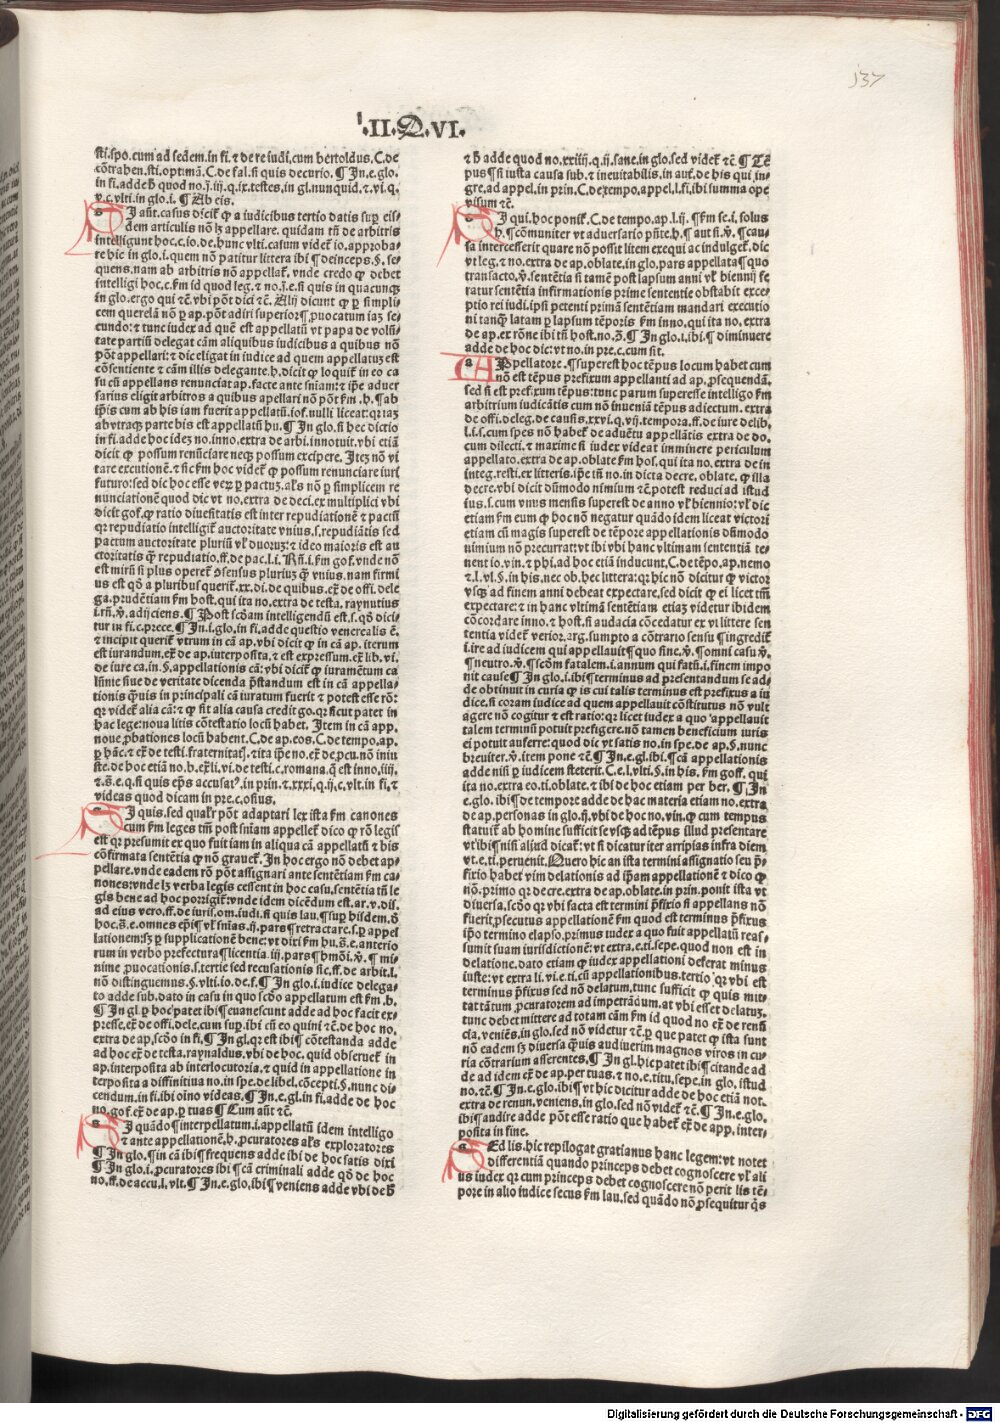 137
.II.Q.VI.
sti.spo.cum ad sedem.in fi.⁊ de re iudi.cum bertoldus.C.de
cōtrahen.sti.optimā.C.de fal.si quis decurio.¶ In.e.glo.
in fi.adde ħ quod no.j.iij.q.ix.testes.in gl.nunquid.⁊.vi.q.
v.c.vlti.in glo.i.¶ Ab eis.
Si aūt.casus dicit̄ ꝙ a iudicibus tertio datis suꝑ eis
dem articulis nō lʒ appellare. quidam tn̄ de arbitris
intelligunt hoc.c.io.de.hunc vlti.casum videt̄ io.approba⸗
re hic in glo.i.quem nō patitur littera ibi ¶ deinceps.§.se⸗
quens.nam ab arbitris nō appellat̄.vnde credo ꝙ debet
intelligi hoc.c.ẜm id quod leg.⁊ no.j.e.si quis in quacunqꝫ
in glo.ergo qui ⁊c̄.vbi pōt dici ⁊c̄.Alij dicunt ꝙ ꝑ simpli⸗
cem querelā nō ꝑ ap.pōt adiri superior¶ ꝓuocatum iaʒ se⸗
cundo:⁊ tunc iudex ad quē est appellatū vt papa de volū⸗
tate partiū delegat cām aliquibus iudicibus a quibus nō
pōt appellari:⁊ dic eligat in iudice ad quem appellatuʒ est
cōsentiente ⁊ cām illis delegante.h.dicit ꝙ loquit̄ in eo ca
su cū appellans renunciat ap.facte ante sniam:⁊ ip̄e aduer
sarius eligit arbitros a quibus apellari nō pōt ẜm.h.¶ ab
ip̄is cum ab his iam fuerit appellatū.ios.nulli liceat:qꝛ iaʒ
ab vtraqꝫ parte bis est appellatū hu.¶ In glo.si hec dictio
in fi.adde hoc ideʒ no.inno.extra de arbi.innotuit.vbi etiā
dicit ꝙ possum renūciare neqꝫ possum excipere. Iteʒ nō vi
tare excutionē.⁊ sic ẜm hoc videt̄ ꝙ possum renunciare iuri
futuro:sed dic hoc esse veꝝ ꝑ pactuʒ.als nō ꝑ simplicem re
nunciationē quod dic vt no.extra de deci.ex multiplici vbi
dicit gof.ꝙ ratio diuersitatis est inter repudiationē ⁊ pactū
qꝛ repudiatio intelligit̄ auctoritate vnius.s.repudiātis sed
pactum auctoritate pluriū vl̄ duoruʒ:⁊ ideo maioris est au
ctoritatis ꝙ̄ repudiatio.ff.de pac.l.i. Rn̄.i.ẜm gof.vnde nō
est mirū si plus operet̄ ꝯsensus pluriuʒ ꝙ̄ vnius.nam firmi
us est qd̄ a pluribus querit̄.xx.di.de quibus.ex̄ de offi.dele
ga.prudētiam ẜm host.qui ita no.extra de testa.raynutius
i.rn̄.v̄.adijciens.¶ Post scd̄am intelligendū est.s.qd̄ dici⸗
tur in fi.c.prece.¶ In.i.glo.in fi.adde questio venerealis ē.
⁊ incipit querit̄ vtrum in cā ap.vbi dicit ꝙ in cā ap.iterum
est iurandum.ex̄ de ap.interposita.⁊ est expressum.ex̄ lib.vi.
de iure ca.in.§.appellationis cā:vbi dicit̄ ꝙ iuramētum ca
lūnie siue de veritate dicenda pr̄standum est in cā appella⸗
tionis ꝙ̄uis in principali cā iuratum fuerit ⁊ potest esse rō:
qꝛ videt̄ alia cā:⁊ ꝙ sit alia causa credit go.qꝛ sicut patet in
hac lege:noua litis cōtestatio locū habet. Item in cā app.
noue ꝓbationes locū habent.C.de ap.eos.C.de tempo.ap.
ꝑ hāc.⁊ ex̄ de testi.fraternitatꝭ.⁊ ita ip̄e no.ex̄ de ꝓcu.nō iniu
ste.de hoc etiā no.h.ex̄ li.vi.de testi.c.romana.ꝙ̄ est inno.iiij.
⁊.s̄.e.q.si quis ep̄s accusatꝰ.in prin.⁊.xxxi.q.ij.c.vlt.in fi.⁊
videas quod dicam in pre.c.osius.
Si quis.sed qualr̄ pōt adaptari lex ista ẜm canones
cum ẜm leges tm̄ post sniam appellet̄ dico ꝙ rō legis
est qꝛ presumit ex quo fuit iam in aliqua cā appellatū ⁊ bis
cōfirmata sentētia ꝙ nō grauet̄. In hoc ergo nō debet ap⸗
pellare.vnde eadem rō pōt assignari ante sentētiam ẜm ca⸗
nones:vnde lʒ verba legis cessent in hoc casu.sentētia tn̄ le
gis bene ad hoc porrigit̄:vnde idem dicēdum est.ar.v.dis.
ad eius vero.ff.de iurisͬ.om.iudi.si quis lau.¶ suꝑ hisdem.ꝺ̄
hoc.s̄.e.omnes ep̄i¶ vl̄ sn̄ias.ij.pars ¶ retractare.s.ꝑ appel
lationem:sʒ ꝑ supplicationē bene:vt dixi ẜm hu.s̄.e.anterio
rum in verbo prefectura¶ licentia.iij.pars ¶ bmōi.v̄.¶ mi⸗
nime ꝓuocationis.s.tertie sed recusationis sic.ff.de arbit.l.
nō distinguemus.§.vlti.io.de.f.¶ In glo.i.iudice delega⸗
to adde sub.dato in casu in quo scd̄o appellatum est ẜm.b.
¶ In gl.ꝑ hoc patet ibi¶ euanescunt adde ad hoc facit ex⸗
presse.ex̄ de offi.dele.cum suꝑ.ibi cū eo quini ⁊c̄.de hoc no.
extra de ap.scd̄o in fi.¶ In gl.qꝛ est ibi¶ cōtestanda adde
ad hoc ex̄ de testa.raynaldus.vbi de hoc. quid obseruet̄ in
ap.interposita ab interlocutoria.⁊ quid in appellatione in
terposita a diffinitiua no.in spe.de libel.cōcepti.§.nunc di⸗
cendum.in fi.ibi oīno videas.¶ In.e.gl.in fi.adde de hoc
no.gof.ex̄ de ap.ꝑ tuas ¶ Cum aūt ⁊c̄.
Si quādo ¶ interpellatum.i.appellatū idem intelligo
⁊ ante appellationē.h.ꝓcuratores als exploratores
¶ In glo.¶ in cā ibi¶ frequens adde ibi de hoc satis dixi
¶ In glo.i.ꝓcuratores ibi ¶ cā criminali adde qd̄ de hoc
no.ff.de accu.l.vlt.¶ In.e.glo.ibi¶ veniens adde vbi de ħ
⁊ ħ adde quod no.xxiij.q.ij.sane.in glo.sed videt̄ ⁊c̄.¶ Tē
pus ¶ si iusta causa sub.⁊ ineuitabilis.in aut̄.de his qui in⸗
gre.ad appel.in prin.C.de tempo.appel.l.fi.ibi summa ope
visum ⁊c̄.
Si qui.hoc ponit̄.C.de tempo.ap.l.ij.¶ ẜm sc.i.solus
h.¶ cōmuniter vt aduersario pn̄te.h.¶ aut si.v̄.¶ cau⸗
sa intercesserit quare nō possit litem exequi ac indulget̄.dic
vt leg.⁊ no.extra de ap.oblate.in glo.pars appellata¶ quo
transacto.v̄.sentētia si tamē post lapsum anni vl̄ biennij fe
ratur sentētia infirmationis prime sententie obstabit exce⸗
ptio rei iudi.ipsi petenti primā sentētiam mandari executio
ni tanqꝫ latam ꝑ lapsum tēporis ẜm inno.qui ita no. extra
de ap.ex rōne ibi tn̄ host.no.ꝺ̄.¶ In glo.i.ibi.¶ diminuere
adde de hoc dic:vt no.in pre.c.cum sit.
Appellatore.¶ superest hoc tēpus locum habet cum
nō est tēpus prefixum appellanti ad ap.ꝓsequendā.
sed si est prefixum tēpus:tunc parum superesse intelligo ẜm
arbitrium iudicātis cum nō inueniā tēpus adiectum. extra
de offi.deleg.de causis.xxvi.q.vij.tempora.ff.de iure delib.
l.i.s.cum spes nō habet̄ de aduētu appellātis extra de do.
cum dilecti.⁊ maxime si iudex videat imminere periculum
appellato.extra de ap.oblate ẜm hos.qui ita no.extra de in
integ.resti.ex litteris.ip̄e tn̄ no.in dicta decre.oblate.ꝙ illa
decre.vbi dicit dūmodo nimium ⁊c̄.potest reduci ad istud
ius.s.cum vnus mensis superest de anno vl̄ biennio:vl̄ dic
etiam ẜm eum ꝙ hoc nō negatur quādo idem liceat victori
etiam cū magis superest de tēpore appellationis dūmodo
nimium nō precurrat:vt ibi vbi hanc vltimam sententiā te⸗
nent io.vin.⁊ phi.ad hoc etiā inducunt.C.de tēpo.ap.nemo
⁊.l.vl.§.in his.nec ob.hec littera:qꝛ hic nō dicitur ꝙ victor
vsqꝫ ad finem anni debeat expectare.sed dicit ꝙ ei licet tm̄
expectare:⁊ in hanc vltimā sentētiam etiaʒ videtur ibidem
cōcordare inno.⁊ host.si audacia cōcedatur ex vi littere sen
tentia videt̄ verior.arg.sumpto a cōtrario sensu ¶ ingredit̄
i.ire ad iudicem qui appellauit¶ quo fine.v̄.¶ omni casu v̄.
¶ neutro.v̄.¶ scd̄m fatalem.i.annum qui fatū.i.finem impo
nit cause¶ In glo.i.ibi¶ terminus ad presentandum se ad⸗
de obtinuit in curia ꝙ is cui talis terminus est prefixus a iu
dice.si coram iudice ad quem appellauit cōstitutus nō vult
agere nō cogitur ⁊ est ratio:qꝛ licet iudex a quo appellauit
talem terminū potuit prefigere.nō tamen beneficium iuris
ei potuit auferre:quod dic vt satis no.in spe.de ap.§.nunc
breuiter.v̄.item pone ⁊c̄.¶ In.e.gl.ibi.¶ cā appellationis
adde nisi ꝑ iudicem steterit.C.e.l.vlti.§.in his.ẜm goff.qui
ita no.extra eo.ti.oblate.⁊ ibi de hoc etiam per ber.¶ In
e.glo.ibi¶ de tempore adde de hac materia etiam no.extra
de ap.personas in glo.ij.vbi de hoc no.vin.ꝙ cum tempus
statuit̄ ab homine sufficit se vsqꝫ ad tēpus illud presentare
vt ibi¶ nisi aliud dicat̄:vt si dicatur iter arripias infra diem
vt.e.ti.peruenit.Quero hic an ista termini assignatio seu p̄⸗
fixio habet vim delationis ad ip̄am appellationē ⁊ dico ꝙ
nō.primo qꝛ decre.extra de ap.oblate.in prin.ponit ista vt
diuersa.scd̄o qꝛ vbi facta est termini p̄fixio si appellans nō
fuerit ꝓsecutus appellationē ẜm quod est terminus p̄fixus
ip̄o termino elapso.primus iudex a quo fuit appellatū reas⸗
sumit suam iurisdictionē:vt extra.e.ti.sepe.quod non est in
delatione.dato etiam ꝙ iudex appellationi deferat minus
iuste:vt extra li.vi.e.ti.cū appellationibus.tertio qꝛ vbi est
terminus p̄fixus sed nō delatum.tunc sufficit ꝙ quis mit⸗
tat tātum ꝓcuratorem ad impetrādum.at vbi esset delatuʒ.
tunc debet mittere ad totam cām ẜm id quod no.ex̄ de renū
cia.veniēs.in glo.sed nō videtur ⁊c̄.ꝑ que patet ꝙ ista sunt
nō eadem sʒ diuersa ꝙ̄uis audiuerim magnos viros in cu⸗
ria cōtrarium asserentes.¶ In gl.hic patet ibi¶ citande ad
de ad idem ex̄ de ap.per tuas.⁊ no.e.titu.sepe.in glo. istud
no.⁊c̄.¶ In.e.glo.ibi¶ vt hic dicitur adde de hoc etiā not.
extra de renun.veniens.in glo.sed nō videt̄ ⁊c̄.¶ In.e.glo.
ibi¶ audire adde pōt esse ratio que habet̄ ex̄ de app.inter⸗
posita in fine.
Sed lis.hic repilogat gratianus hanc legem:vt notet
differentiā quando princeps debet cognoscere vl̄ ali
us iudex qꝛ cum princeps debet cognoscere nō perit lis tē⸗
pore in alio iudice secus ẜm lau.sed quādo nō ꝓsequitur qͥs
Digitalisierung gefördert durch die Deutsche Forschungsgemeinschaft -
DFG